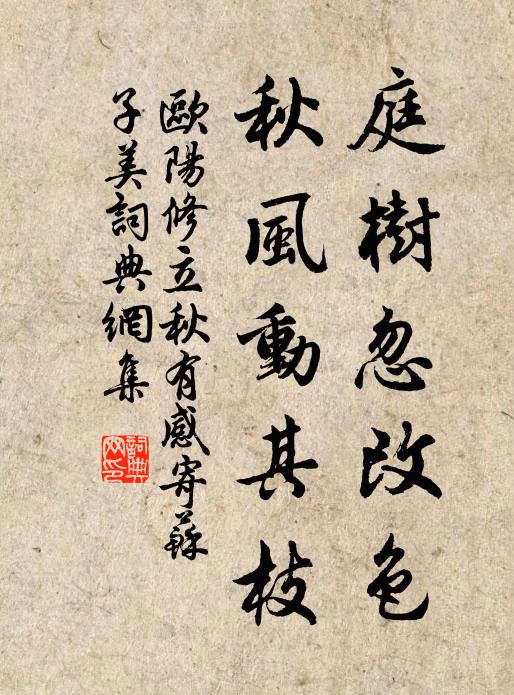 庭樹忽改色
秋風動其枝
歐陽修立秋有感寄蘇
子美詞典網集
詞典
网印